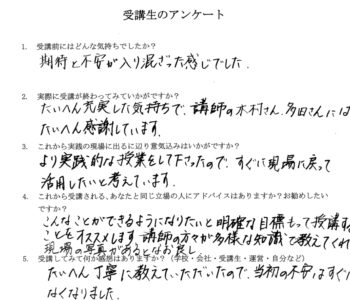 受講生のアンケート
1. 受講前にはどんな気持ちでしたか?
期待と不安が入り混ざった感じでした.
2. 実際に受講が終わってみていかがですか?
たいへん充実した気持ちで、講師の木村さん、多田さんには
たいへん感謝しています.
3. これから実践の現場に出るに辺り意気込みはいかがですか?
より実践的な授業をして下さったので、すぐに現場に戻って
活用したいと考えています.
4. これから受講される、あなたと同じ立場の人にアドバイスはありますか?お勧めしたい
ですか?
こんなことができるようになりたいと明確な目標もって受講する
ことをオススメします 講師の方々が多様な知識で教えてくれ
現場の写真があるとなお良し
5. 受講してみて何か感想はありますか?(学校・会社・受講生・運営・自分など)
たいへん丁寧に教えていただいたので、当初の不安はすぐに
なくなりました.